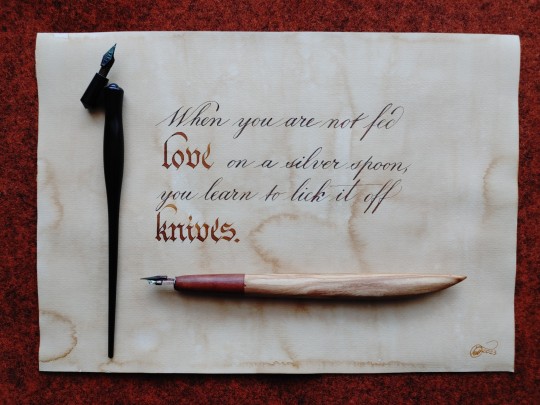 When you are not fed
love on a silver spoon,
you learn to lick it off
knives.